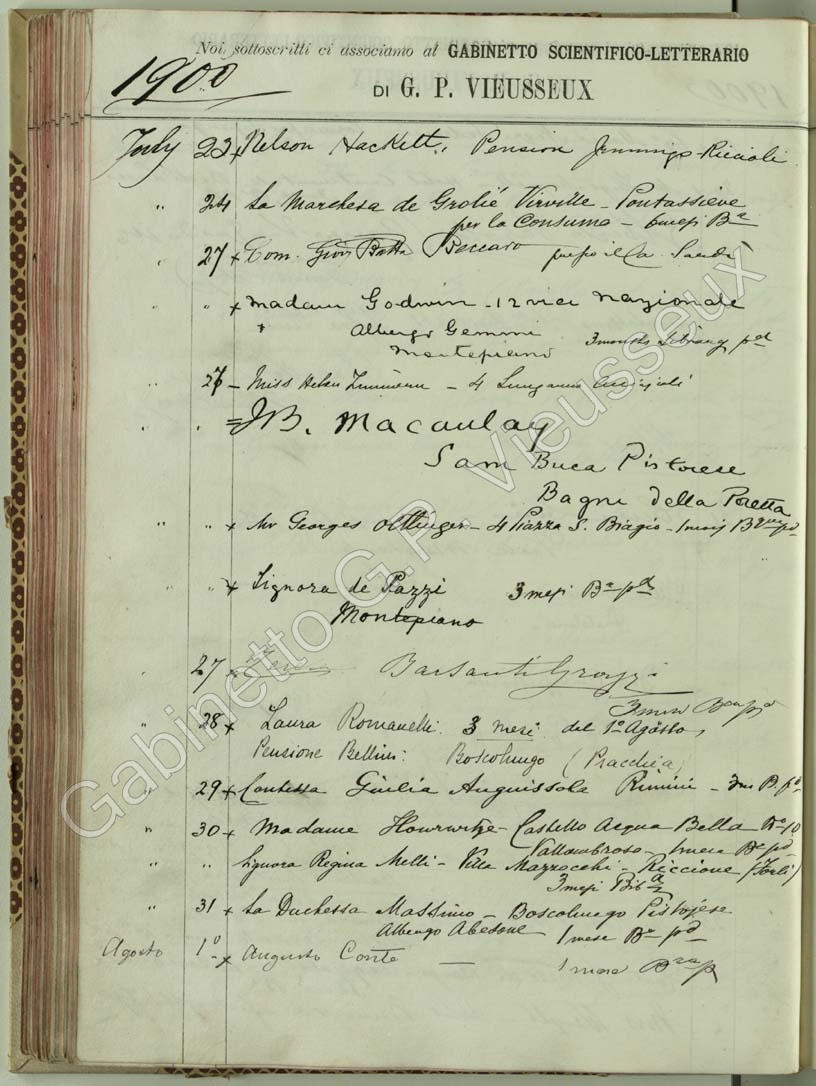 Noi sottoscritti ci associamo al GABINETTO SCIENTIFICO-LETTERARIO
1900
DI G. P. VIEUSSEUX
July 23 x Nelson Hackett, Pension Jennings-Riccioli
" 24 La Marchesa de Grolié Virville - Pontassieve
per la Consuma - 6 mesi Bª
27 x Com. Giov Batta Beccaro presso il Ca.
" " x Madam Godwin - 12 via Nazionale
Albergo Gemmi
Montepiano 3 months Library pd
" 27 - Miss Helen - 4 Lungarno
" " = JB. Macaulay
Sam Buca Pistoiese
Bagni della Poretta
" " x Mr Georges Oettinger - 4 Piazza S. Biagio - 1 mesi
" " x Signora de Pazzi 3 mesi Bª pd
Montepiano
27 x Barsanti Grazzi
3 mesi
" 28 x Laura Romanelli. 3 mesi dal 1º Agosto
Pensione Bellini: Boscolungo (Pracchia)
" 29 x Contessa Giulia Anguissola Rimini - 3 m B. pd
" 30 x Madame Hourwitze - Castello Acqua Bella
Vallombrosa - 1 mese Bª pd
" " Signora Regina Melli - Villa Mazzocchi - Riccione (Forlì)
3 mesi Bibª
" 31 x La Duchessa Massimo - Boscolungo Pistojese
Albergo Abetone 1 mese Bª pd
Agosto 1º - x Augusto Conte — 1 mese
Gabinetto G.P. Vieusseux